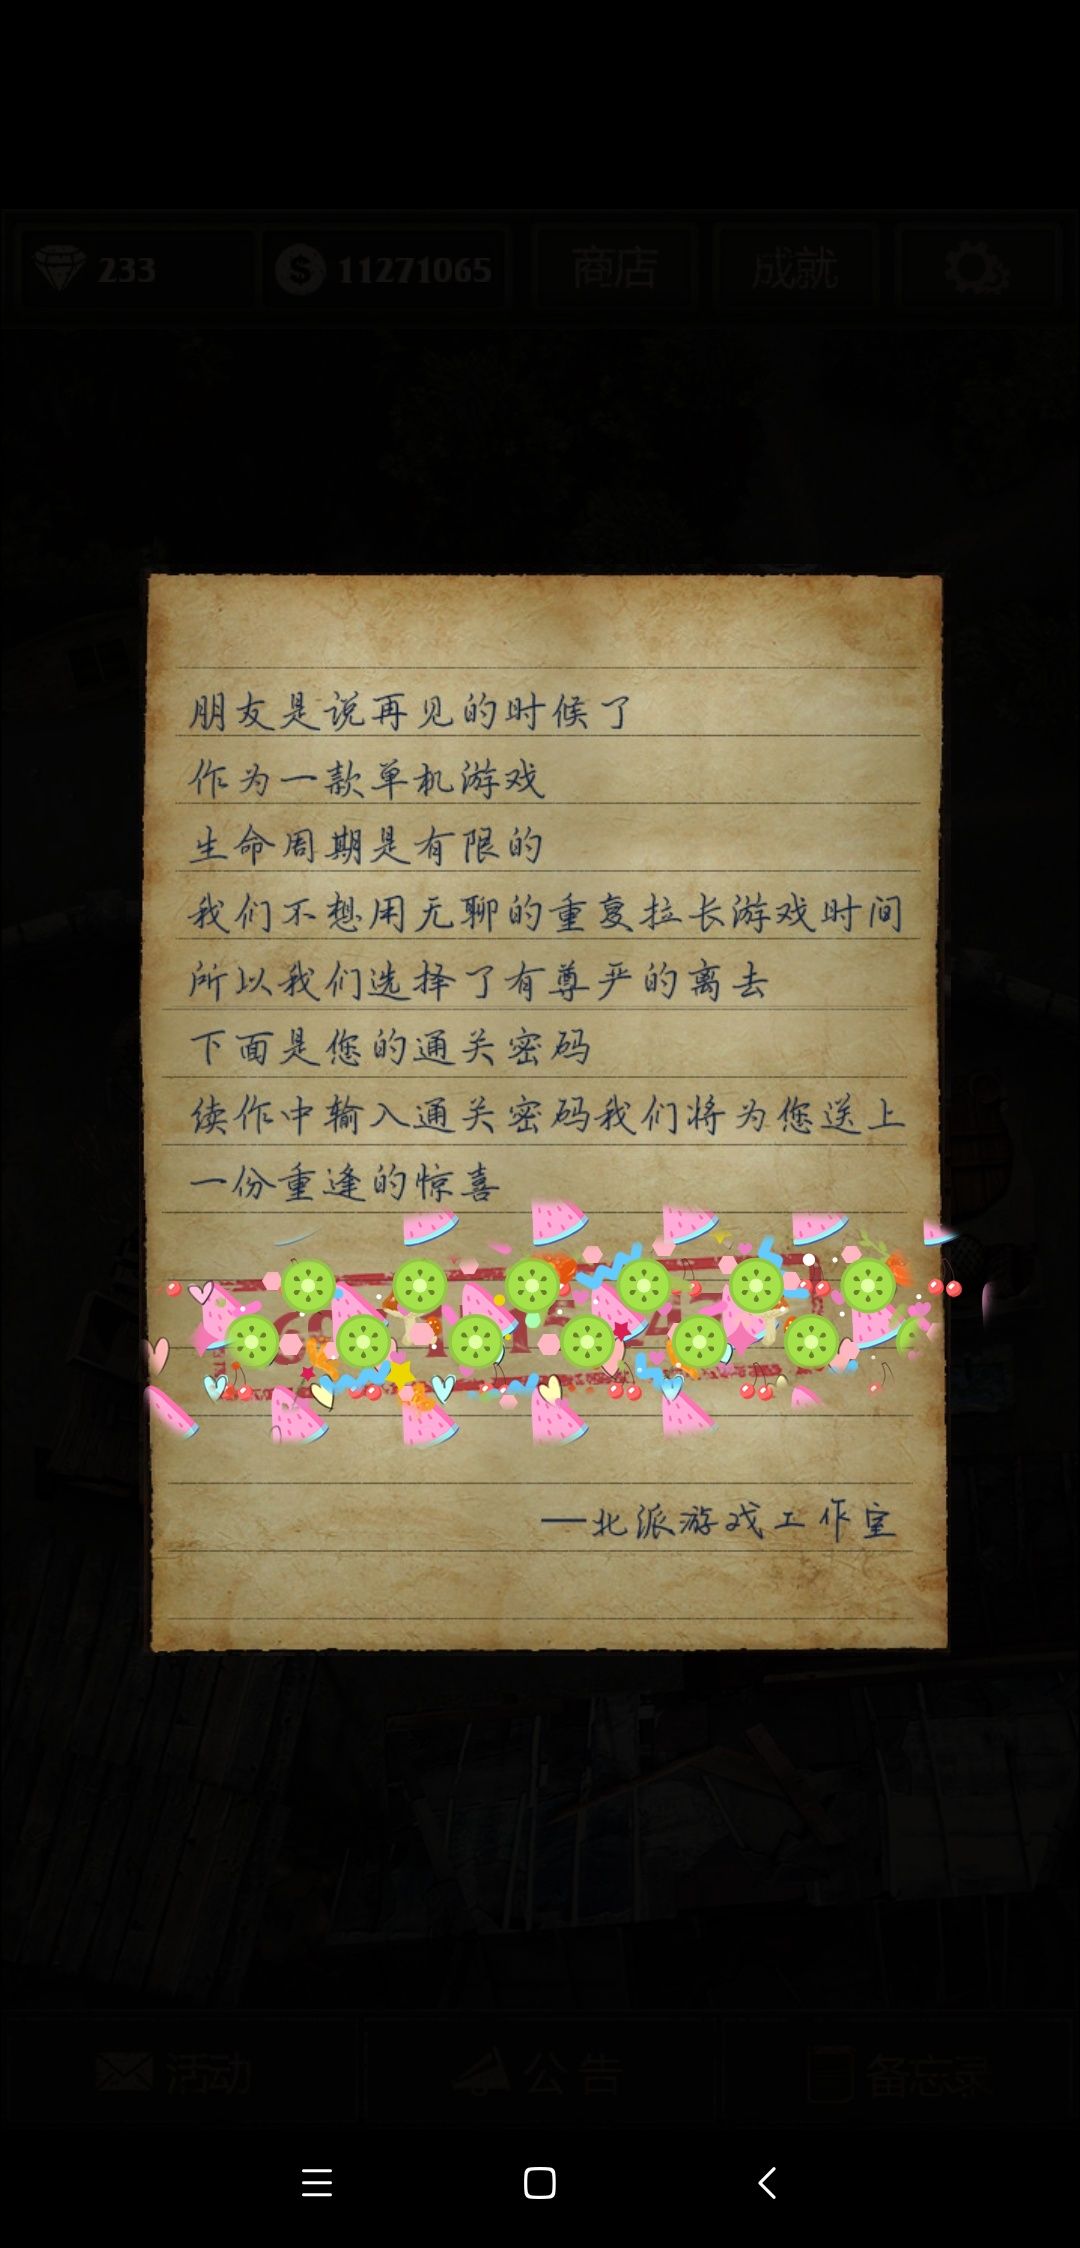 233 11271065 商店 成就
朋友是说再见的时候了
作为一款单机游戏
生命周期是有限的
我们不想用无聊的重复拉长游戏时间
所以我们选择了有尊严的离去
下面是您的通关密码
续作中输入通关密码我们将为您送上
一份重逢的惊喜
一北派游戏工作室
活动 公告 备忘录